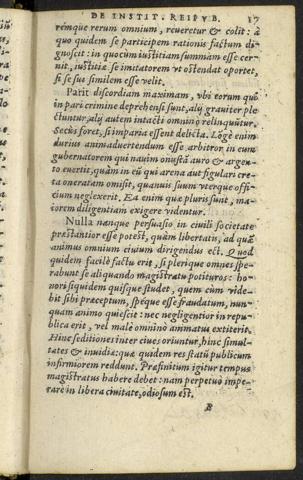 DE INSTIT. REIPVB. 17
rémque rerum omnium, reueretur & colit: à
quo quidem se participem rationis factum di-
gnoscit: in quocūm iustitiam summam esse cer-
nit, iustitiæ se imitatorem vt ostendat oportet,
si se sui similem esse velit.
Parit discordiam maximam, vbi eorum qui
in pari crimine deprehensi sunt, alij grauiter ple
ctuntur, alij autem intacti omnino relinquūtur.
Secus foret, si imparia essent delicta. Lōgè enim
durius animaduertendum esse arbitror in eum
gubernatorem qui nauim onustā auro & argen-
to euertit, quàm in eū qui arena aut figulari cre-
ta oneratam omisit, quanuis suum vterque offi-
cium neglexerit. Ea enim quæ pluris sunt, ma-
iorem diligentiam exigere videntur.
Nulla nanque persuasio in ciuili societate
præstantior esse potest, quàm libertatis, ad quā
animus omnium ciuium dirigendus est. Quod
quidem facilè factu erit, si plerique omnes spe-
rabunt se aliquando magistratu potituros: ho-
nori siquidem quisque studet, quem cùm vide-
bit sibi præceptum, spéque esse fraudatum, nun-
quam animo quiescit: nec negligentior in repu-
blica erit, vel malè omninò animatus extiterit.
Hinc seditiones inter ciues oriuntur, hinc simul-
tates & inuidiæ: quæ quidem res statū publicum
infirmiorem reddunt. Præfinitum igitur tempus
magistratus habere debet: nam perpetuò impe-
rare in libera ciuitate, odiosum est.
B